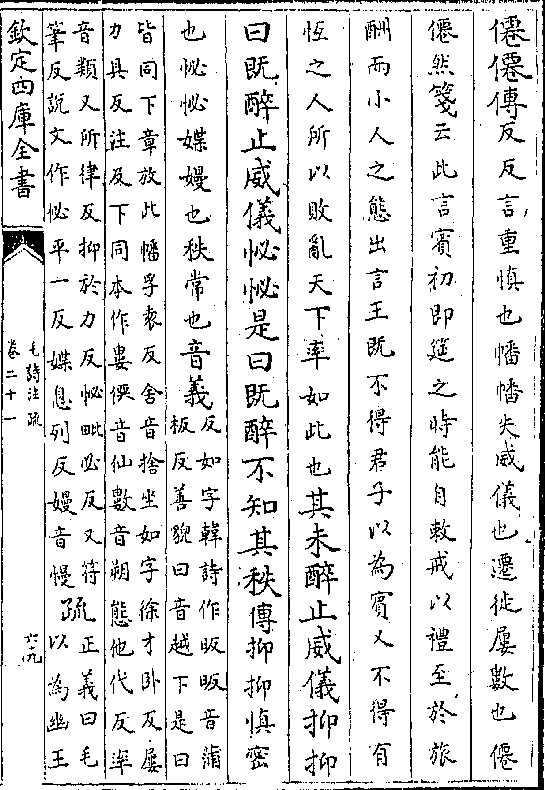 僊僊傳反反言重慎也幡幡失威儀也遷徙屢數也僊
僊然箋云此言賓初即筵之時能自敕戒以禮至於旅
酬而小人之態出言王既不得君子以為賓又不得有
恆之人所以敗亂天下率如此也其未醉止威儀抑抑
曰既醉止威儀怭怭是曰既醉不知其秩傳抑抑慎密
也怭怭媟嫚也秩常也音義
反如字韓詩作昄昄音蒲
板反善貌曰音越下是曰
皆同下章放此幡孚袁反舍音捨坐如字徐才卧反屢
力具反注及下同本作婁僊音仙數音朔態他代反率
音類又所律反抑於力反怭毗必反又符
筆反說文作佖平一反媟息列反嫚音慢
疏
正義曰毛
以為幽王
欽定四庫全書
毛詩注疏
卷二十一
六十九